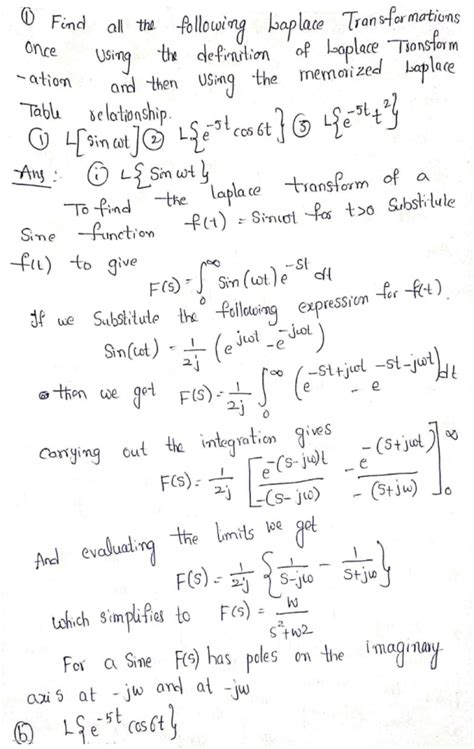 ① Find all the following Laplace Transformations
once using the definition of Laplace Transform
-ation and then using the memorized Laplace
Table relationship.
① L[sin ωt] ② L{e^-5t cos6t} ③ L{e^-5t t^2}
Ans :- ① L{sin ωt}
To find the laplace transform of a
Sine function f(t) = Sinωt for t>0 Substitute
f(t) to give
F(S) = ∫_0^∞ Sin(ωt) e^-St dt
If we Substitute the following expression for f(t).
Sin(ωt) = 1/2j (e^jωt - e^-jωt)
then we get F(S) = 1/2j ∫_0^∞ (e^-St+jωt - e^-St-jωt) dt
Carrying out the integration gives
F(S) = 1/2j [e^-(S-jω)t / -(S-jω) - e^-(S+jωt) / -(S+jω)]_0^∞
And evaluating the limits we get
F(S) = 1/2j {1/S-jω - 1/S+jω}
which simplifies to F(S) = W/S^2+ω2
For a Sine F(S) has poles on the imaginary
axis at -jω and at -jω
⑥ L{e^-5t cos6t}